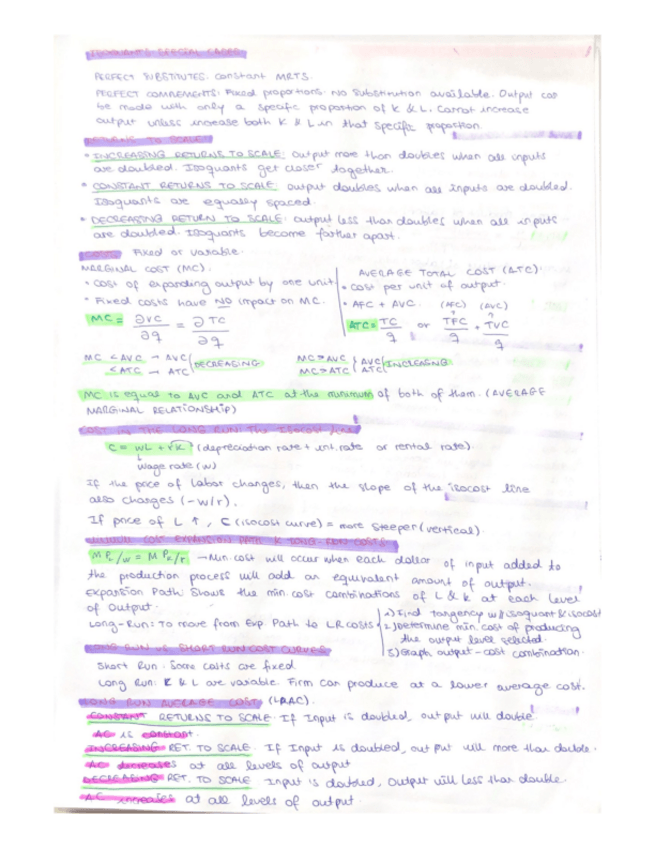 ISOQUANTS SPECIAL CASES
PERFECT SUBSTITUTES: Constant MRTS.
PERFECT COMPLEMENTS: Fixed proportions. No substitution available. Output can
be made with only a specific proportion of K & L. Cannot increase
output unless increase both K & L in that specific proportion.
RETURNS TO SCALE
• INCREASING RETURNS TO SCALE: output more than doubles when all inputs
are doubled. Isoquants get closer together.
• CONSTANT RETURNS TO SCALE: output doubles when all inputs are doubled.
Isoquants are equally spaced.
• DECREASING RETURN TO SCALE: output less than doubles when all inputs
are doubled. Isoquants become farther apart.
COSTS Fixed or variable.
MARGINAL COST (MC).
• Cost of expanding output by one unit.
• Fixed costs have NO impact on MC.
MC = ∂VC/∂q = ∂TC/∂q
AVERAGE TOTAL COST (ATC).
• Cost per unit of output.
• AFC + AVC. (AFC) (AVC)
ATC = TC/q or TFC/q + TVC/q
MC < AVC → AVC DECREASING
< ATC → ATC
MC > AVC AVC INCREASING
MC > ATC ATC
MC is equal to AVC and ATC at the minimum of both of them. (AVERAGE
MARGINAL RELATIONSHIP)
COST IN THE LONG RUN: The Isocost line
C = wL + rK (depreciation rate + int. rate or rental rate).
wage rate (w)
If the price of labor changes, then the slope of the isocost line
also changes (-w/r).
If price of L ↑, C (isocost curve) = more steeper (vertical).
MINIMUM COST EXPANSION PATH & LONG-RUN COSTS
MPL/w = MPK/r → Min. cost will occur when each dollar of input added to
the production process will add an equivalent amount of output.
Expansion Path: Shows the min. cost combinations of L & K at each level
of output.
Long-Run: To move from Exp Path to LR costs
1) Find tangency w/ isoquant & isocost
2) Determine min. cost of producing
the output level selected.
3) Graph output-cost combination.
LONG RUN VS SHORT RUN COST CURVES
Short Run: Some costs are fixed.
Long Run: K & L are variable. Firm can produce at a lower average cost.
LONG RUN AVERAGE COST (LRAC).
CONSTANT RETURNS TO SCALE: If Input is doubled, output will double.
AC is constant.
INCREASING RET. TO SCALE: If Input is doubled, output will more than double.
AC decreases at all levels of output
DECREASING RET. TO SCALE Input is doubled, Output will less than double.
AC increases at all levels of output.